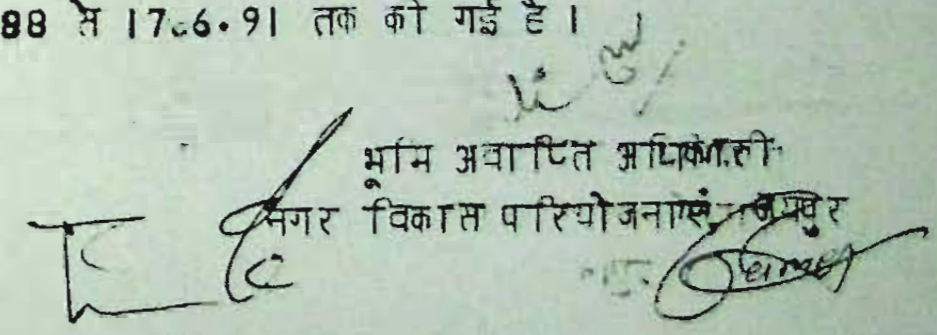 88 से 17.6.91 तक की गई है ।
भूमि अवाप्ति अधिकारी
नगर विकास परियोजनाएं, जयपुर